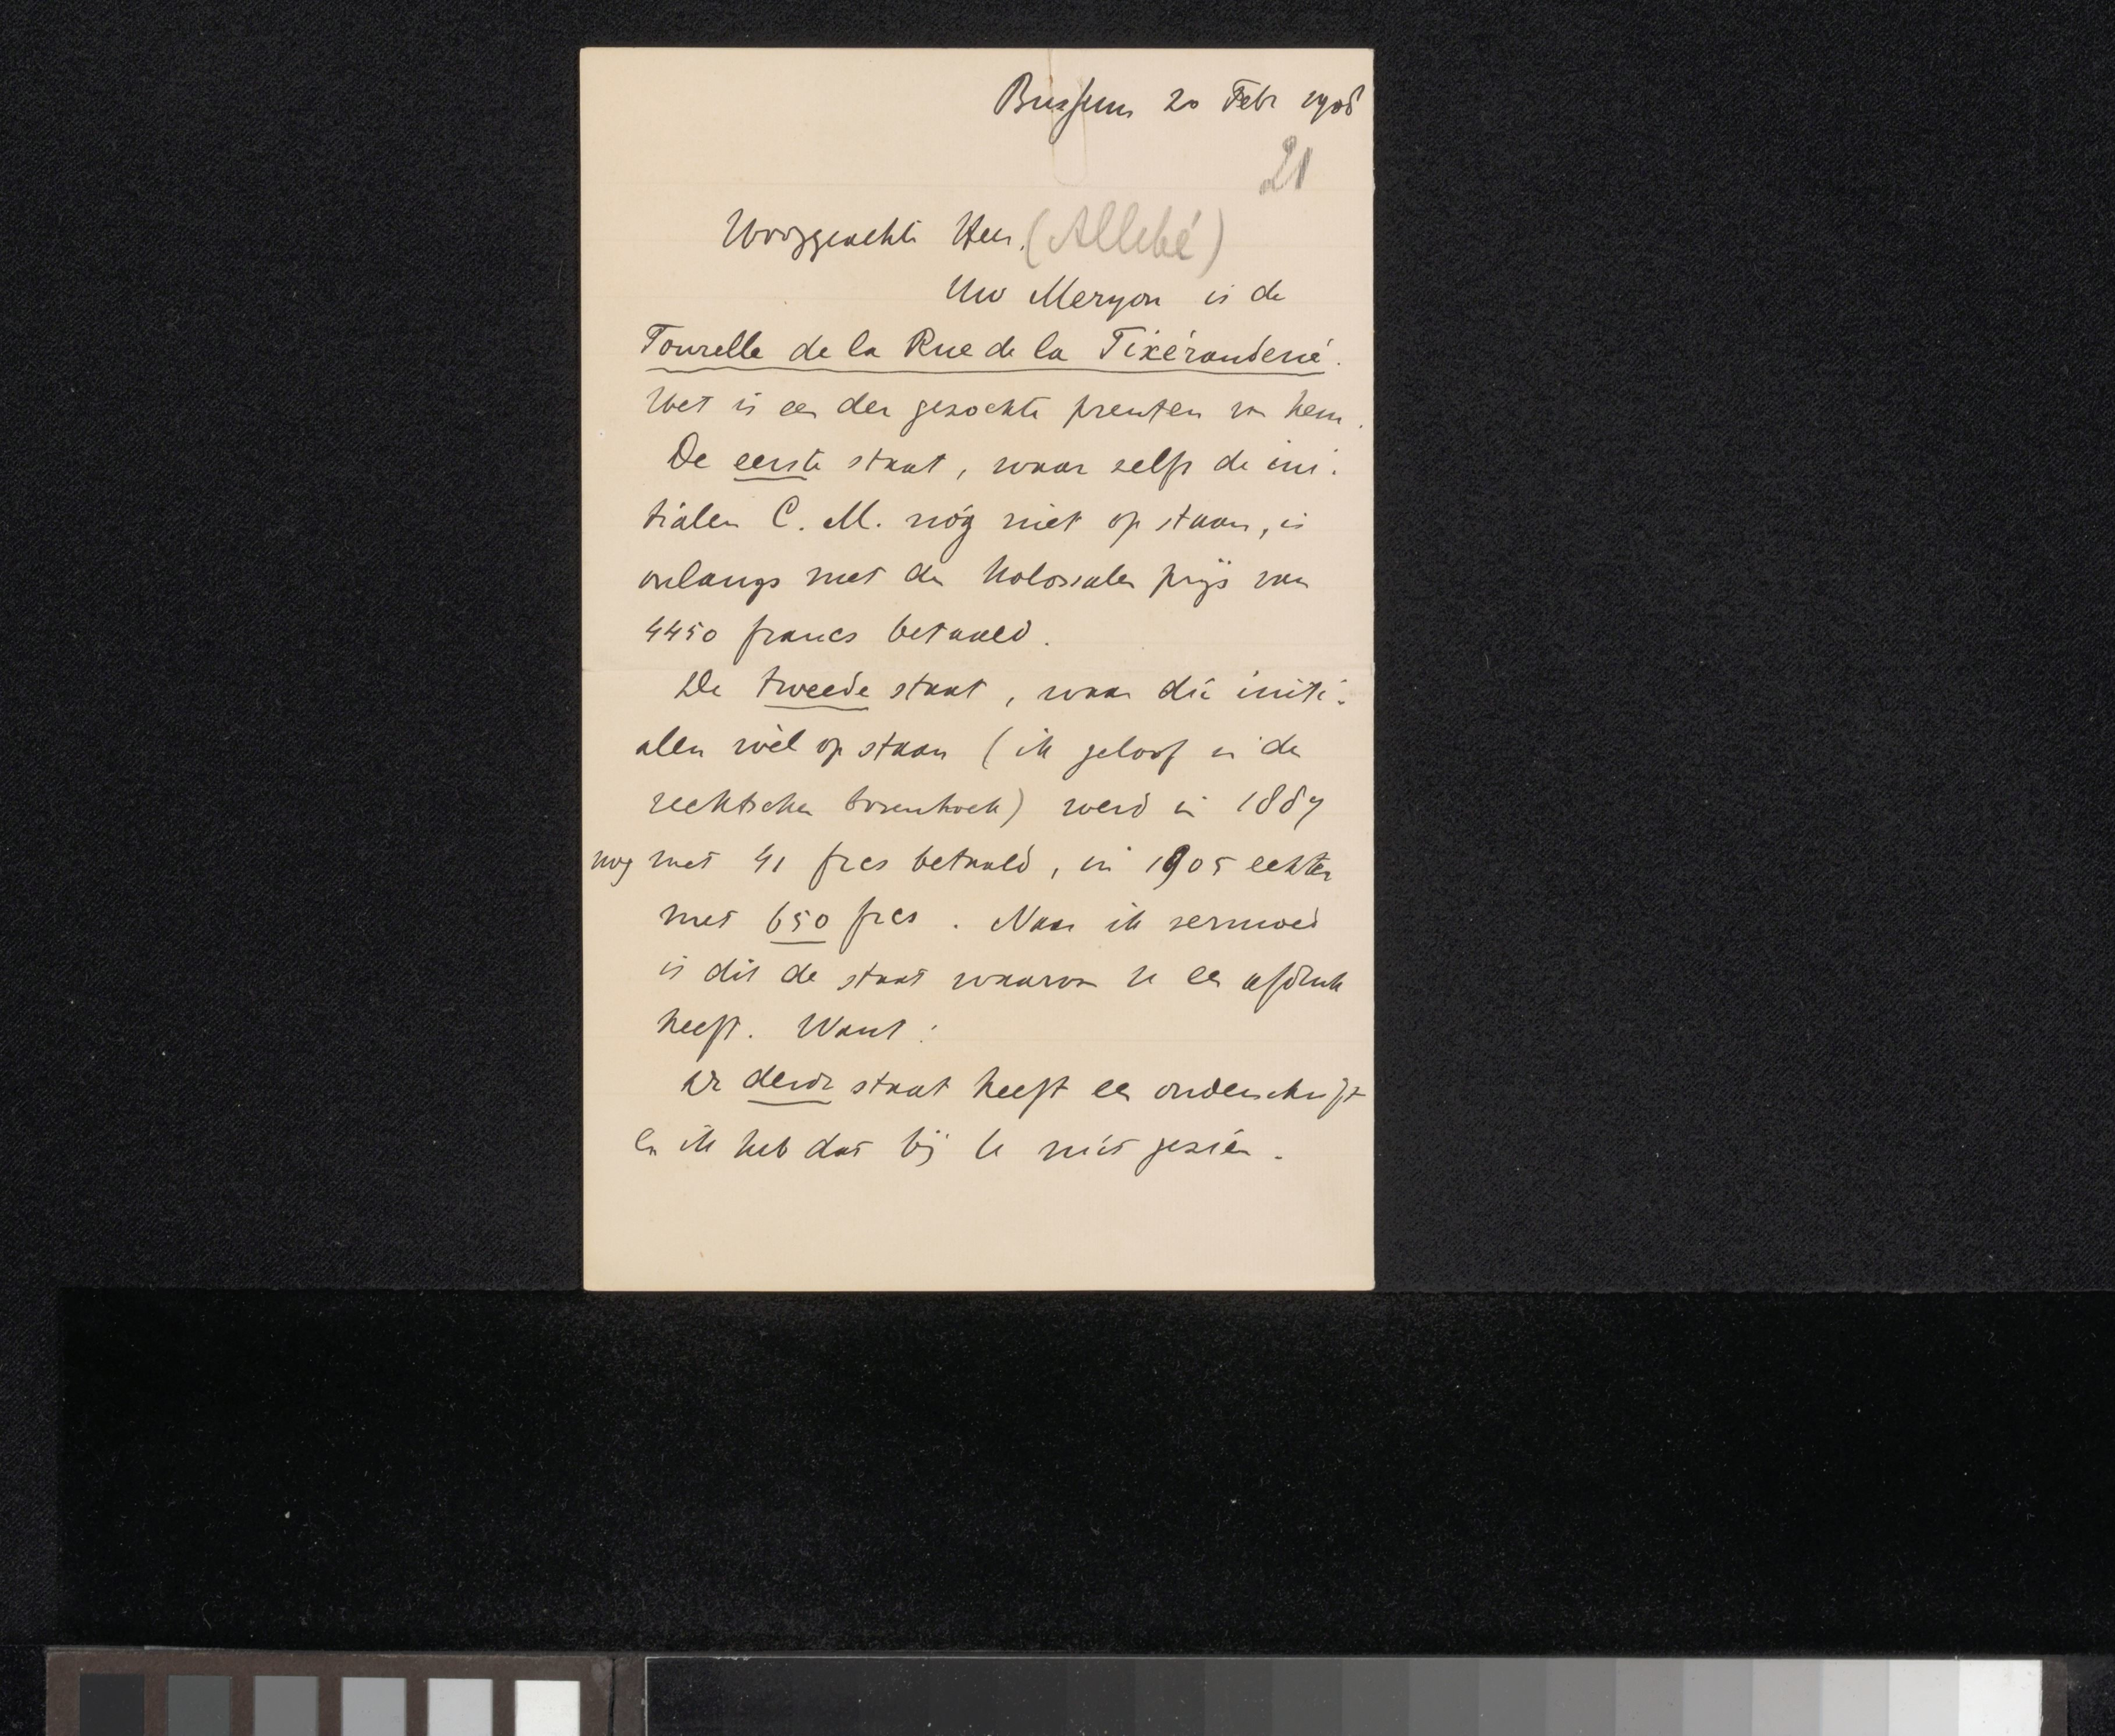 Bussum 20 Febr 1908
21
Hooggeachte Heer. (Allebé)
Uw Meryon is de
Tourelle de la Rue de la Tixéranderie.
Het is een der gezochte prenten van hem.
De eerste staat, waar zelfs de ini-
tialen C. M. nóg niet op staan, is
onlangs met den kolossalen prijs van
4450 francs betaald.
De tweede staat, waar die initi-
alen wèl op staan (ik geloof in den
rechtschen bovenhoek) werd in 1887
nog met 41 frcs betaald, in 1905 echter
met 650 frcs. Naar ik vermoed
is dit de staat waarvan U een afdruk
heeft. Want:
De derde staat heeft een onderschrift
en ik heb dat bij U niet gezien.